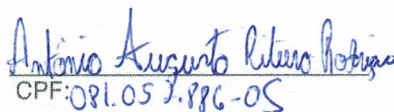 Antônio Augusto Ribeiro Rodrigues
CPF: 081.053.886-05